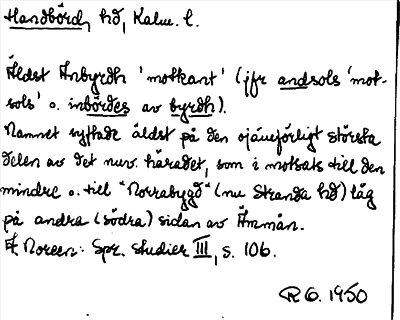 Handbörd, hd, Kalm. l.
Äldst Anbyrdh 'motkant' (jfr andsols 'mot-
sols' o. inbördes av byrdh).
Namnet syftade äldst på den ojämförligt största
delen av det nuv. häradet, som i motsats till den
mindre o. till "Norrabygd" (nu Stranda hd) låg
på andra (södra) sidan av Ämmån.
E Noreen: Spr. studier III, s. 106.
R G. 1950